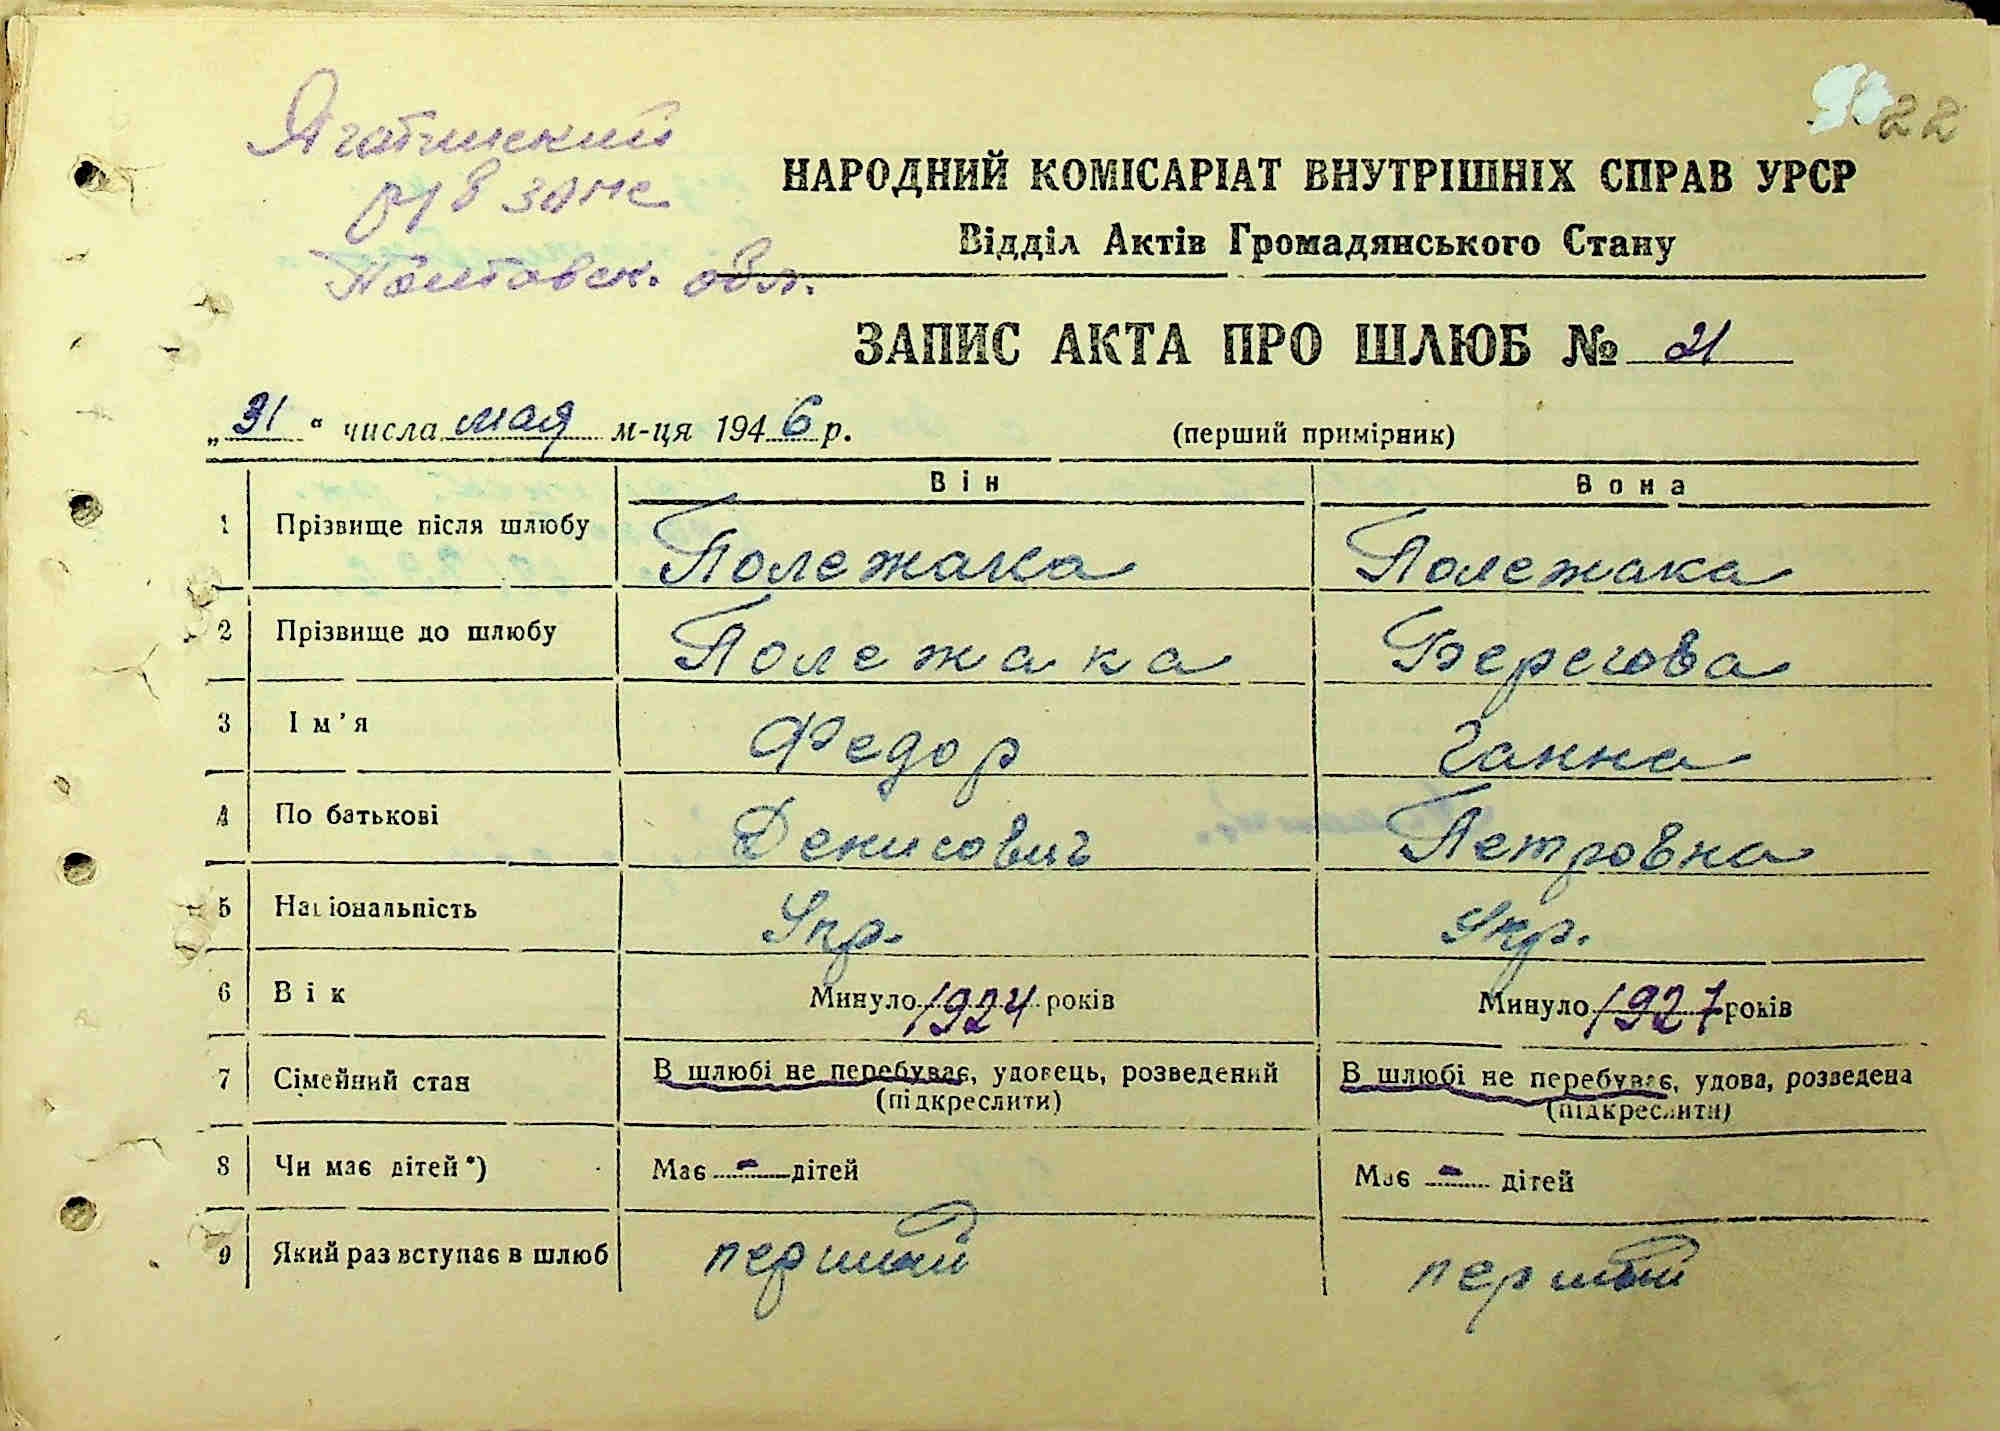 Ягатинский
р/в загс
Полтавск. обл.
22
НАРОДНИЙ КОМІСАРІАТ ВНУТРІШНІХ СПРАВ УРСР
Відділ Актів Громадянського Стану
ЗАПИС АКТА ПРО ШЛЮБ № 21
„31“ числа мая м-ця 1946 р. (перший примірник)
Він Вона
1 Прізвище після шлюбу Полежака Полежака
2 Прізвище до шлюбу Полежака Берегова
3 Ім'я Федор Ганна
4 По батькові Денисович Петровна
5 Національність Укр. Укр.
6 Вік Минуло 1924 років Минуло 1927 років
7 Сімейний стан В шлюбі не перебуває, удовець, розведений (підкреслити) В шлюбі не перебуває, удова, розведена (підкреслити)
8 Чи має дітей*) Має - дітей Має - дітей
9 Який раз вступає в шлюб першый першый